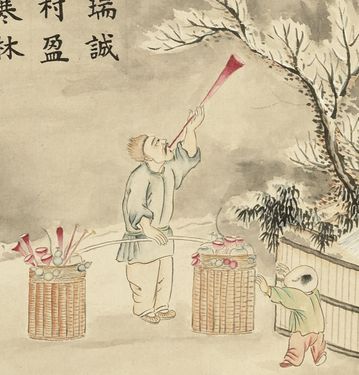 瑞誠
村盈
寒林